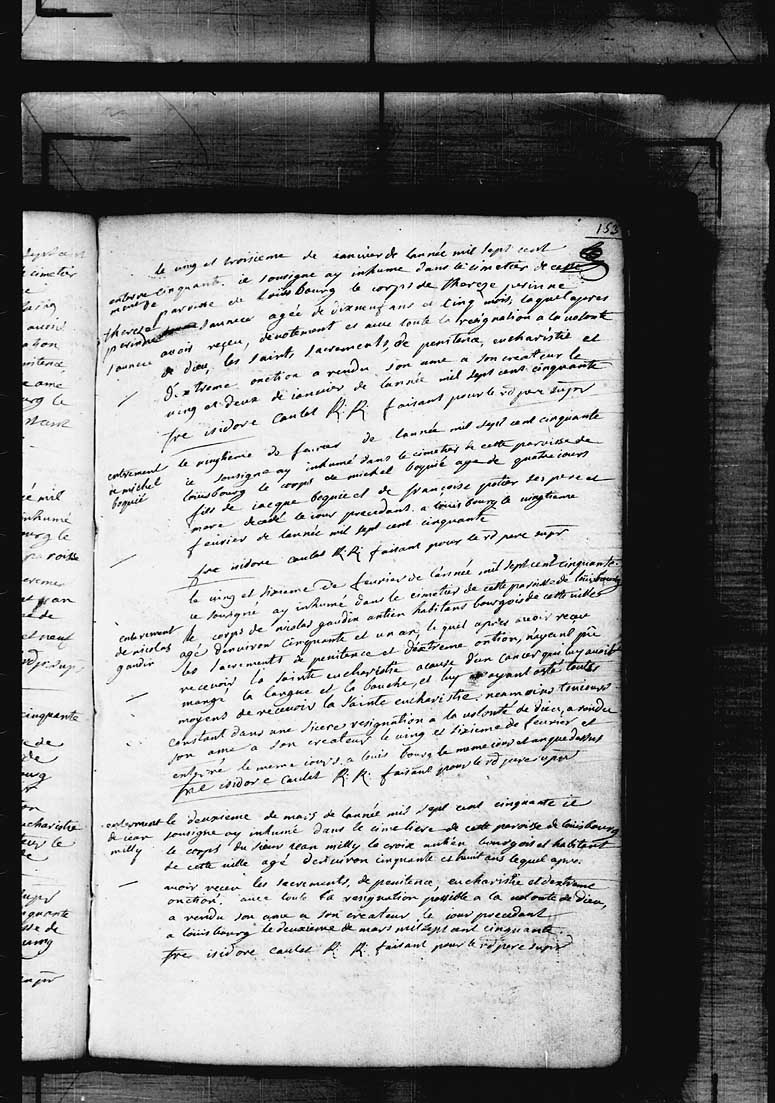 153
le ving et troisieme de ianvier de lannée mil sept cent
cinquante ie sousigne ay inhume dans le cimetier de cette
paroisse de louisbourg le corps de therese perinne
sauneur agée de dixneuf ans et cinq mois, laquel apres
avoir reçeu, devotement et avec toute la resignation a la volonté
de dieu, les saints sacrements, de penitence, eucharistie et
dextreme onction a rendu son ame a son createur le
ving et deux de ianvier de lannée mil sept cent cinquante
fre isidore caulet R: R: faisant pour le rd pere supr
enterrement
de michel
bequié
le vingtieme de fevrier de lannée mil sept cent cinquante
ie sousigne ay inhumé dans le cimetier de cette paroisse de
louisbourg le corps de michel bequié age de quatre iours
fils de iacque bequié et de françoise potier ses pere et
mere decedé le iour precedant a louisbourg le vingtieme
fevrier de lannée mil sept cent cinquante
fre isidore caulet R: R: faisant pour le rd pere supr
enterrement
de nicolas
gaudin
le ving et sixieme de fevrier de lannée mil sept cent cinquante
ie sousigné ay inhumé dans le cimetier de cette paroisse de louisbourg
le corps de nicolas gaudin antien habitans bourgois de cette ville
agé denviron cinquante et un an, le quel apres avoir receu
les sacrements de penitence et dextreme ontion, nayeul pû
recevoir la sainte eucharistie acause dun cancer qui luy avoit
mangé la langue et la bouche, et luy ayant osté touts
moyens de recevoir la sainte eucharistie neamoins tousieurs
constant dans une sicere resignation a la volonté de dieu, a rendu
son ame a son createur le ving et sixieme de fevrier et
enterré le meme iour, a louis bourg le meme iour et an que dessus
fre isidore caulet R: R: faisant pour le rd pere supr
enterrement
de iean
milly
le deuxieme de mars de lannée mil sept cent cinquante ie
sousigne ay inhumé dans le cimetiere de cette paroisse de louisbourg
le corps du sieur iean milly la croix antien bourgois et habitant
de cette ville agé denviron cinquante et huit ans lequel apres
avoir receu les sacrements, de penitence, eucharistie et dextreme
onction, avec toute la resignation possible a la volonte de dieu,
a rendu son ame a son createur le iour precedant
a louisbourg le deuxieme de mars mil sept cent cinquante
fre isidore caulet R: R: faisant pour le rd pere supr